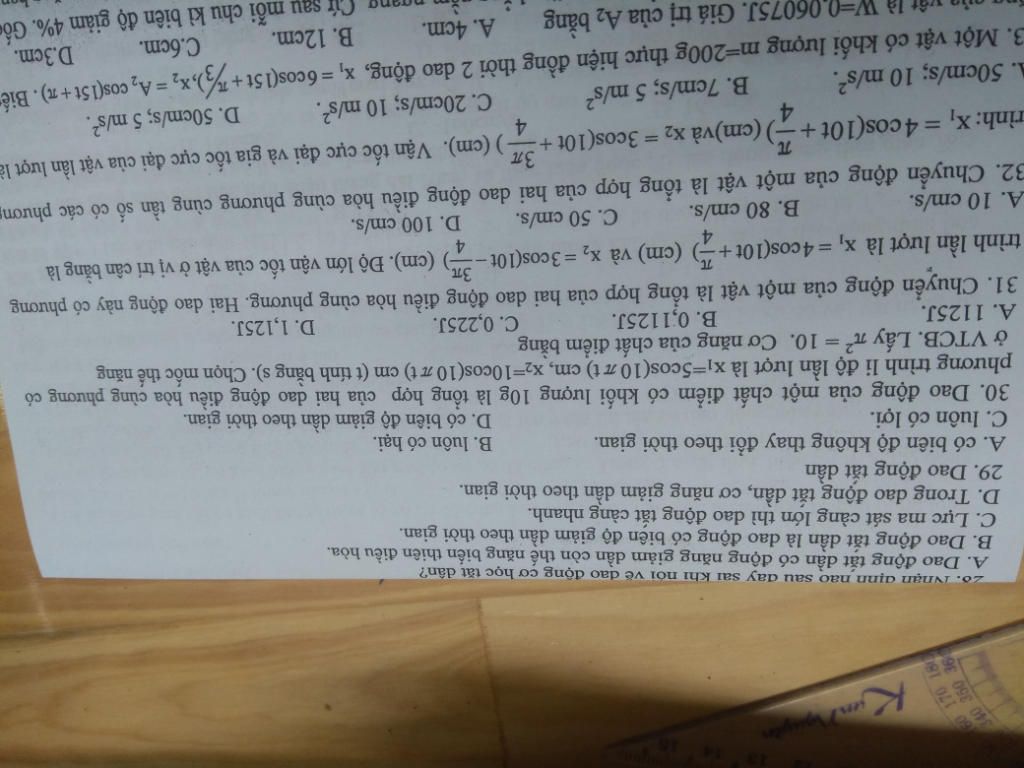 28. Nhận định nào sau đây sai khi nói về dao động cơ học tắt dần?
A. Dao động tắt dần có động năng giảm dần còn thế năng biến thiên điều hòa.
B. Dao động tắt dần là dao động có biên độ giảm dần theo thời gian.
C. Lực ma sát càng lớn thì dao động tắt càng nhanh.
D. Trong dao động tắt dần, cơ năng giảm dần theo thời gian.
29. Dao động tắt dần
A. có biên độ không thay đổi theo thời gian. B. luôn có hại.
C. luôn có lợi. D. có biên độ giảm dần theo thời gian.
30. Dao động của một chất điểm có khối lượng 10g là tổng hợp của hai dao động điều hòa cùng phương có
phương trình li độ lần lượt là x₁=5cos(10πt) cm, x₂=10cos(10πt) cm (t tính bằng s). Chọn mốc thế năng
ở VTCB. Lấy π² = 10. Cơ năng của chất điểm bằng
A. 1125J. B. 0,1125J. C. 0,225J. D. 1,125J.
31. Chuyển động của một vật là tổng hợp của hai dao động điều hòa cùng phương. Hai dao động này có phương
trình lần lượt là x₁ = 4cos(10t + π/4) (cm) và x₂ = 3cos(10t − 3π/4) (cm). Độ lớn vận tốc của vật ở vị trí cân bằng là
A. 10 cm/s. B. 80 cm/s. C. 50 cm/s. D. 100 cm/s.
32. Chuyển động của một vật là tổng hợp của hai dao động điều hòa cùng phương cùng tần số có các phương
trình: x₁ = 4cos(10t + π/4) (cm)và x₂ = 3cos(10t + 3π/4) (cm). Vận tốc cực đại và gia tốc cực đại của vật lần lượt là
A. 50cm/s; 10 m/s². B. 7cm/s; 5 m/s² C. 20cm/s; 10 m/s². D. 50cm/s; 5 m/s².
3. Một vật có khối lượng m=200g thực hiện đồng thời 2 dao động, x₁ = 6cos(15t + π/3), x₂ = A₂ cos(15t + π). Biết
của vật là W=0,06075J. Giá trị của A₂ bằng A. 4cm. B. 12cm. C.6cm. D.3cm.
ngang. Cứ sau mỗi chu kì biên độ giảm 4%. Gốc
Kim Nguyên